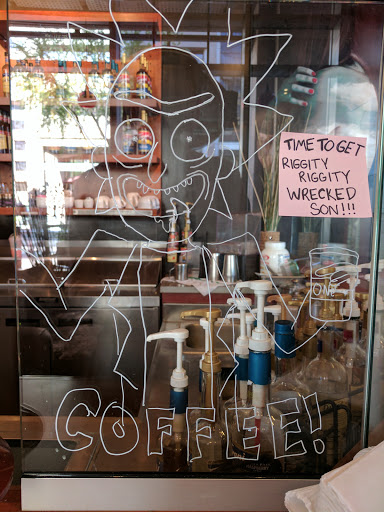 TIME TO GET
RIGGITY
RIGGITY
WRECKED
SON!!!
COFFEE!